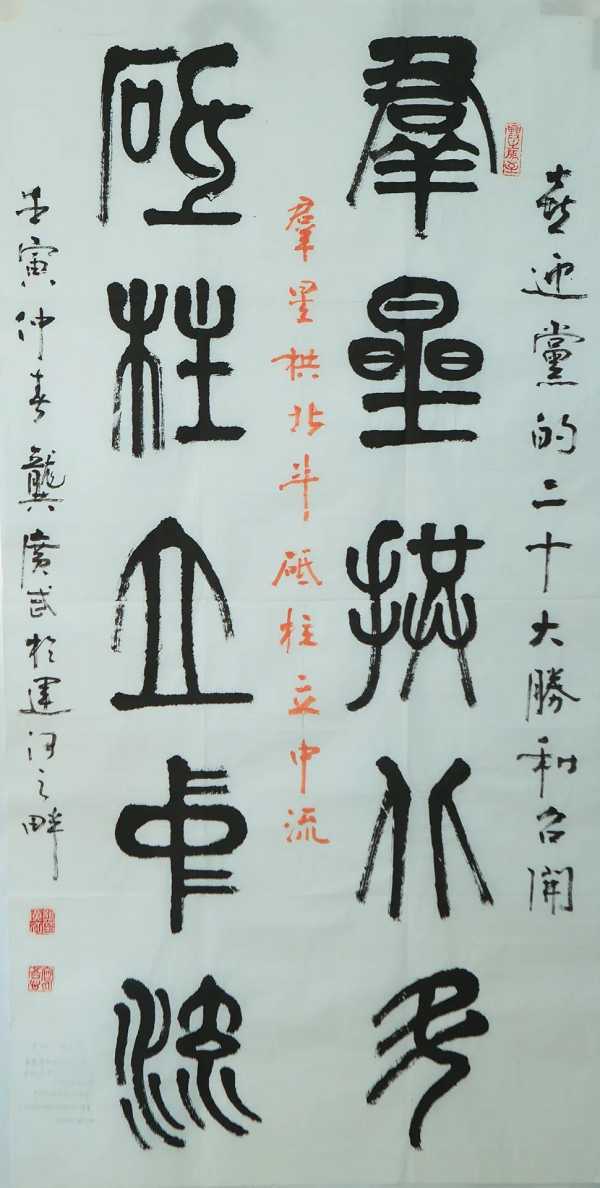 喜迎黨的二十大勝和召開
羣星拱北斗
羣星拱北斗砥柱立中流
砥柱立中流
壬寅仲春龔廣武於運河之畔